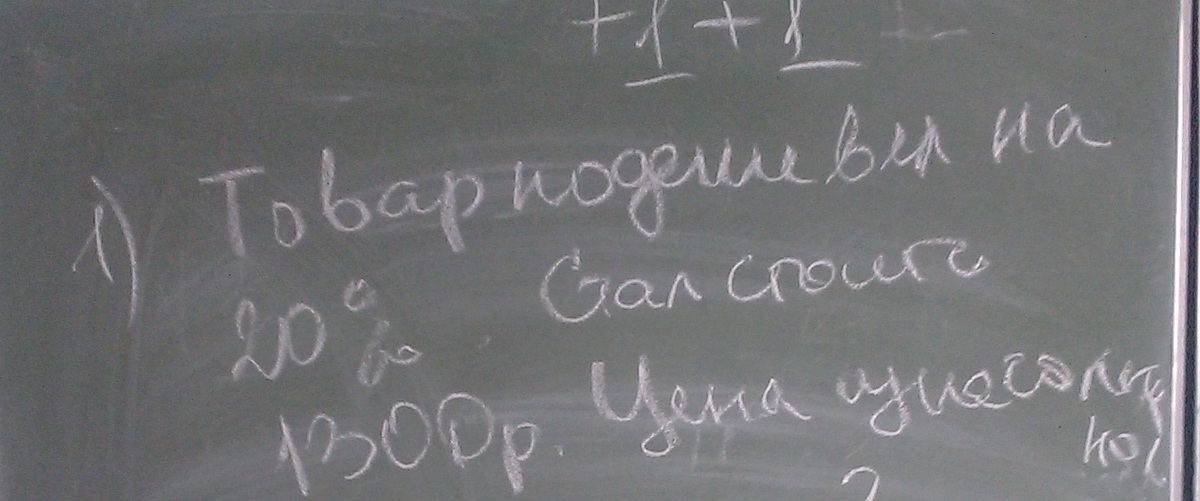 +1+1
1) Товар подешевел на
20%. Стал стоить
1300р. Цена изначаль
ная
?